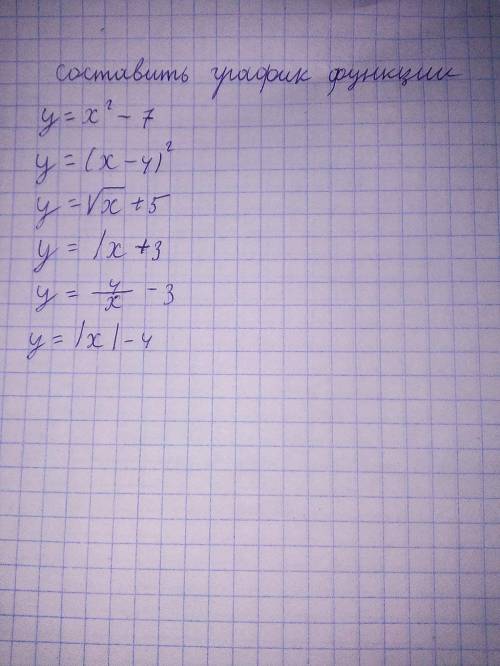 составить график функции
y = x² - 7
y = (x - 4)²
y = √x + 5
y = |x + 3
y = 4/x - 3
y = |x| - 4